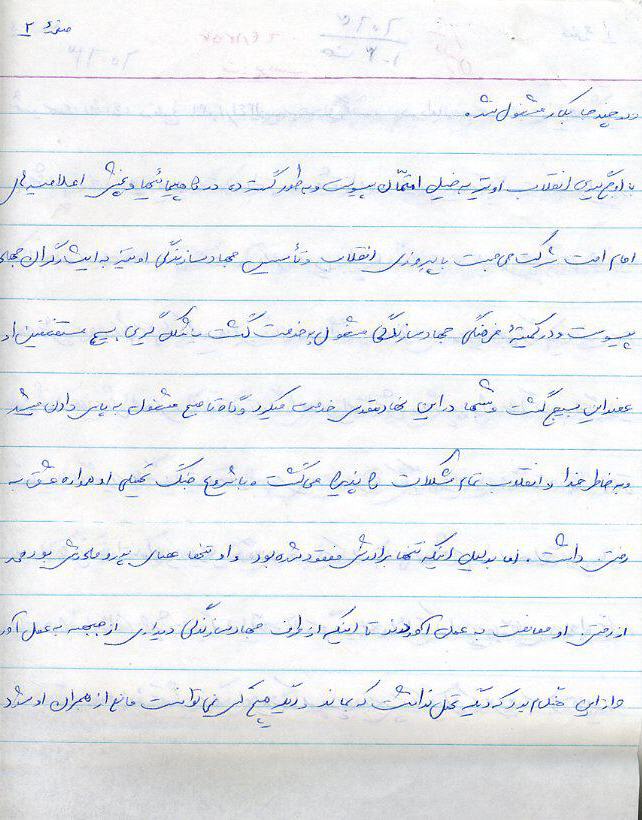 صفحهٔ ۲
در چند جا بکار مشغول شد.
با اوجگیری انقلاب او نیز به خیل امتمان پیوست وبه طور گسترده در راهپیمائیها و پخش اعلامیه های
امام امت شرکت می جست با پیروزی انقلاب و تأسیس جهادسازندگی او نیز به ایثارگران جهاد
پیوست ودر کمیتهٔ فرهنگی جهادسازندگی مشغول به خدمت گشت با شکل گیری بسیج مستضعفین او
عضو این بسیج گشت و شبها در این نهاد مقدس خدمت میکرد و گاه تا صبح مشغول به پاس دادن میشد
وبه خاطر خدا و انقلاب تمام مشکلات را پذیرا می گشت. با شروع جنگ تحمیلی او همواره عشق به
رفتن داشت. اما بدلیل اینکه تنها برادرش مفقود شده بود و او تنها همدم پدر و مادرش بود همه
از رفتن او ممانعت به عمل آوردند تا اینکه از طرف جهادسازندگی دیداری از جبهه به عمل آور
واز این هنگام بود که دیگر تحمل نداشت که بماند و دیگر هیچ کس نمی توانست مانع از همران او شود